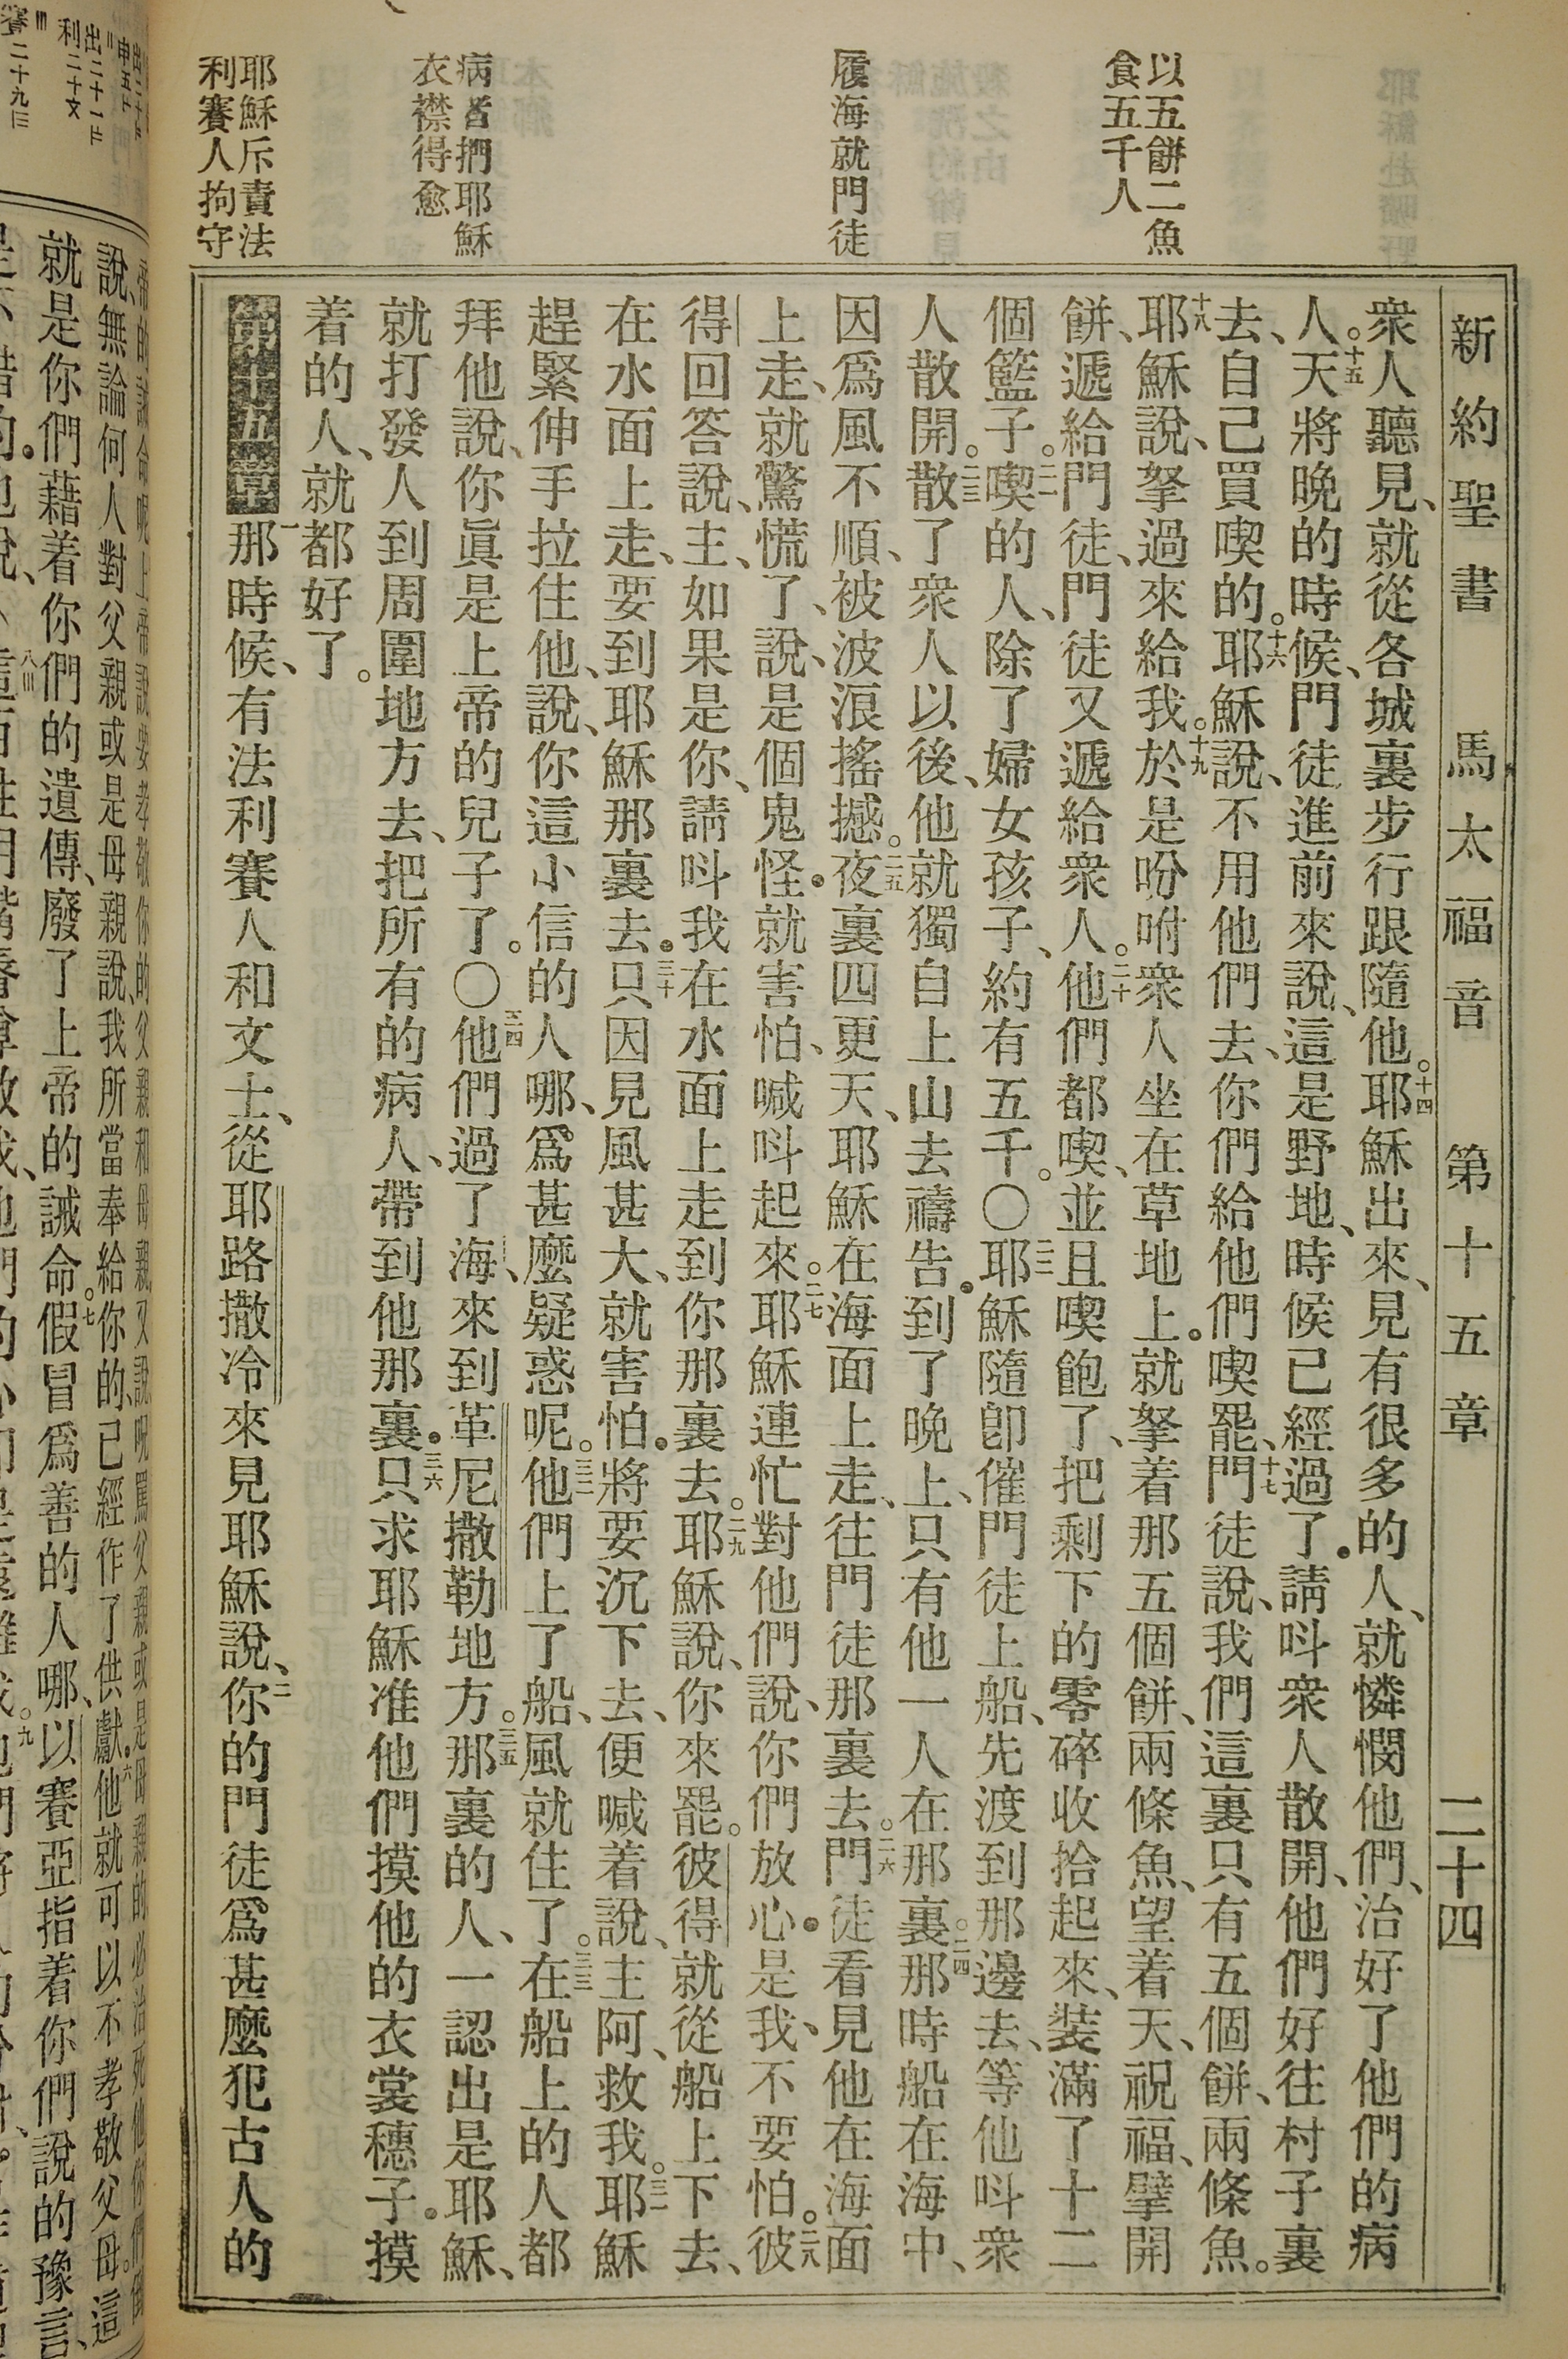 新約聖書 馬太福音 第十五章 二十四
以五餅二魚
食五千人
履海就門徒
病皆捫耶穌
衣襟得愈
耶穌斥責法
利賽人拘守
衆人聽見、就從各城裏步行跟隨他。十四耶穌出來、見有很多的人、就憐憫他們、治好了他們的病
人。十五天將晚的時候、門徒進前來說、這是野地、時候已經過了．請呌衆人散開、他們好往村子裏
去、自己買喫的。十六耶穌說、不用他們去、你們給他們喫罷、十七門徒說、我們這裏只有五個餅、兩條魚。
十八耶穌說、拏過來給我。十九於是吩咐衆人坐在草地上．就拏着那五個餅、兩條魚、望着天、祝福、擘開
餅、遞給門徒、門徒又遞給衆人。二十他們都喫、並且喫飽了、把剩下的零碎收拾起來、裝滿了十二
個籃子。二一喫的人、除了婦女孩子、約有五千。〇二二耶穌隨卽催門徒上船、先渡到那邊去、等他呌衆
人散開。二三散了衆人以後、他就獨自上山去禱告．到了晚上、只有他一人在那裏。二四那時船在海中、
因爲風不順、被波浪搖撼。二五夜裏四更天、耶穌在海面上走、往門徒那裏去。二六門徒看見他在海面
上走、就驚慌了、說、是個鬼怪．就害怕、喊呌起來。二七耶穌連忙對他們說、你們放心．是我、不要怕。二八彼
得回答說、主、如果是你、請呌我在水面上走到你那裏去。二九耶穌說、你來罷。彼得就從船上下去、
在水面上走、要到耶穌那裏去．三十只因見風甚大、就害怕．將要沉下去、便喊着說、主阿、救我。三一耶穌
趕緊伸手拉住他、說、你這小信的人哪、爲甚麼疑惑呢。三二他們上了船、風就住了。三三在船上的人都
拜他說、你眞是上帝的兒子了。〇三四他們過了海、來到革尼撒勒地方。三五那裏的人、一認出是耶穌、
就打發人到周圍地方去、把所有的病人、帶到他那裏．三六只求耶穌准他們摸他的衣裳穗子．摸
着的人、就都好了。
第十五章一那時候、有法利賽人和文士、從耶路撒冷來見耶穌說、二你的門徒爲甚麼犯古人的
說、無論何人對父親或是母親說、我所當奉給你的、已經作了供獻．六他就可以不孝敬父母。這
就是你們藉着你們的遺傳、廢了上帝的誡命。七假冒爲善的人哪、以賽亞指着你們說的豫言、